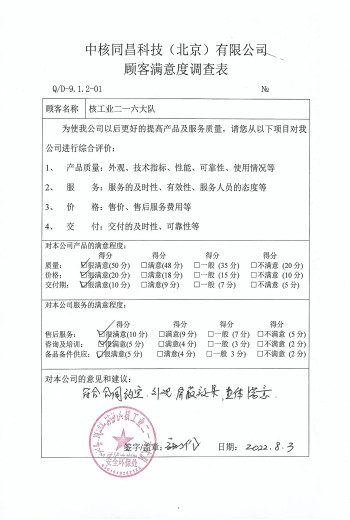 中核同昌科技（北京）有限公司
顾客满意度调查表
Q/D-9.1.2-01 №
顾客名称 核工业二一六大队
为使我公司以后更好的提高产品及服务质量，请您从以下项目对我
公司进行综合评价：
1、 产品质量：外观、技术指标、性能、可靠性、使用情况等
2、 服 务：服务的及时性、有效性、服务人员的态度等
3、 价 格：售价、售后服务费用等
4、 交 付：交付的及时性、可靠性等
对本公司产品的满意程度：
得分 得分 得分 得分
质量： ☑很满意(50分) □满意(48分) □一般 (35分) □不满意 (20分)
价格： ☑很满意(20分) □满意(18分) □一般 (15分) □不满意 (10分)
交付期： ☑很满意(10分) □满意(9分) □一般 (7分) □不满意 (5分)
对本公司服务的满意程度：
得分 得分 得分 得分
售后服务： ☑很满意(10分) □满意(9分) □一般 (7分) □不满意 (5分)
咨询及培训： ☑很满意(5分) □满意(4分) □一般 (3分) □不满意 (2分)
备品备件供应： ☑很满意(5分) □满意(4分) □一般 3分) □不满意 (2分)
对本公司的意见和建议：
符合合同约定，外观 屏蔽效果 整体满意.
签字/盖章： 日期： 2022.8.3
安全环保处